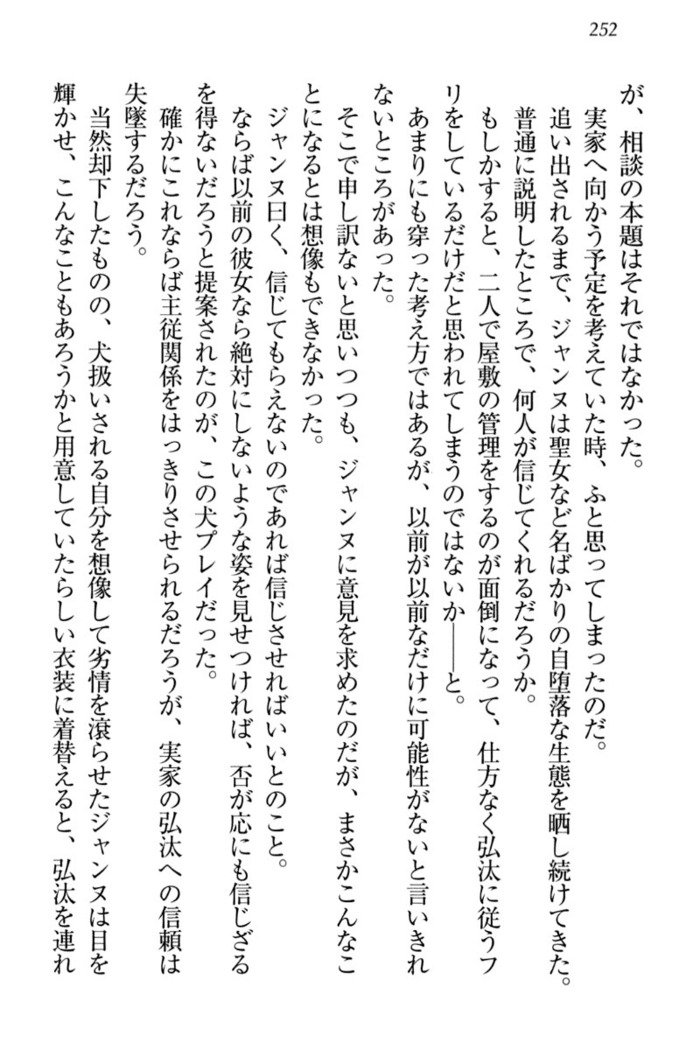 252
が、相談の本題はそれではなかった。
実家へ向かう予定を考えていた時、ふと思ってしまったのだ。
追い出されるまで、ジャンヌは聖女など名ばかりの自堕落な生態を晒し続けてきた。
普通に説明したところで、何人が信じてくれるだろうか。
もしかすると、二人で屋敷の管理をするのが面倒になって、仕方なく弘汰に従うフ
リをしているだけだと思われてしまうのではないか――と。
あまりにも穿った考え方ではあるが、以前が以前なだけに可能性がないと言いきれ
ないところがあった。
そこで申し訳ないと思いつつも、ジャンヌに意見を求めたのだが、まさかこんなこ
とになるとは想像もできなかった。
ジャンヌ曰く、信じてもらえないのであれば信じさせればいいとのこと。
ならば以前の彼女なら絶対にしないような姿を見せつければ、否が応にも信じざる
を得ないだろうと提案されたのが、この犬プレイだった。
確かにこれならば主従関係をはっきりさせられるだろうが、実家の弘汰への信頼は
失墜するだろう。
当然却下したものの、犬扱いされる自分を想像して劣情を滾らせたジャンヌは目を
輝かせ、こんなこともあろうかと用意していたらしい衣装に着替えると、弘汰を連れ